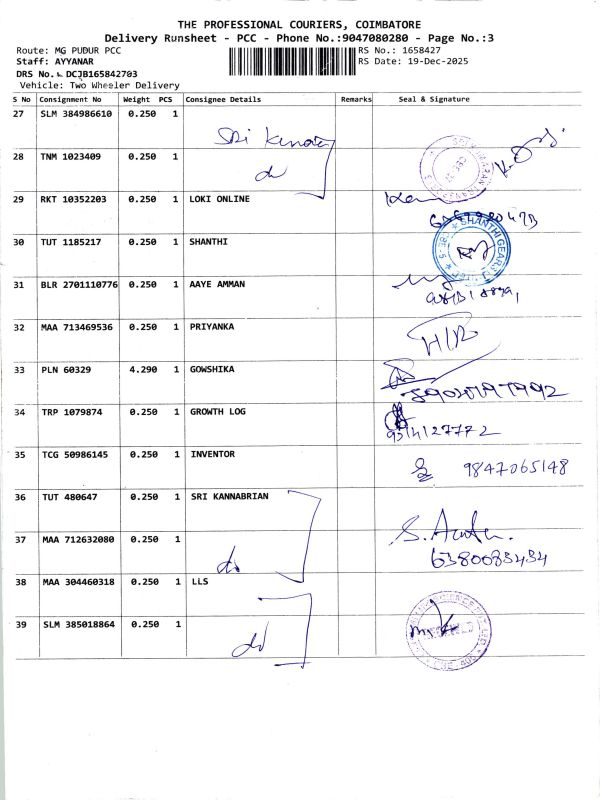 THE PROFESSIONAL COURIERS, COIMBATORE
Delivery Runsheet - PCC - Phone No.:9047080280 - Page No.:3
Route: MG PUDUR PCC RS No.: 1658427
Staff: AYYANAR RS Date: 19-Dec-2025
DRS No.: DCJB165842703
Vehicle: Two Wheeler Delivery
S No Consignment No Weight PCS Consignee Details Remarks Seal & Signature
27 SLM 384986610 0.250 1
28 TNM 1023409 0.250 1
29 RKT 10352203 0.250 1 LOKI ONLINE
30 TUT 1185217 0.250 1 SHANTHI
SHANTHI GEARS
31 BLR 2701110776 0.250 1 AAYE AMMAN
32 MAA 713469536 0.250 1 PRIYANKA
H/R
33 PLN 60329 4.290 1 GOWSHIKA
34 TRP 1079874 0.250 1 GROWTH LOG
35 TCG 50986145 0.250 1 INVENTOR
9847065148
36 TUT 480647 0.250 1 SRI KANNABRIAN
37 MAA 712632080 0.250 1
do
6380083434
38 MAA 304460318 0.250 1 LLS
39 SLM 385018864 0.250 1
do